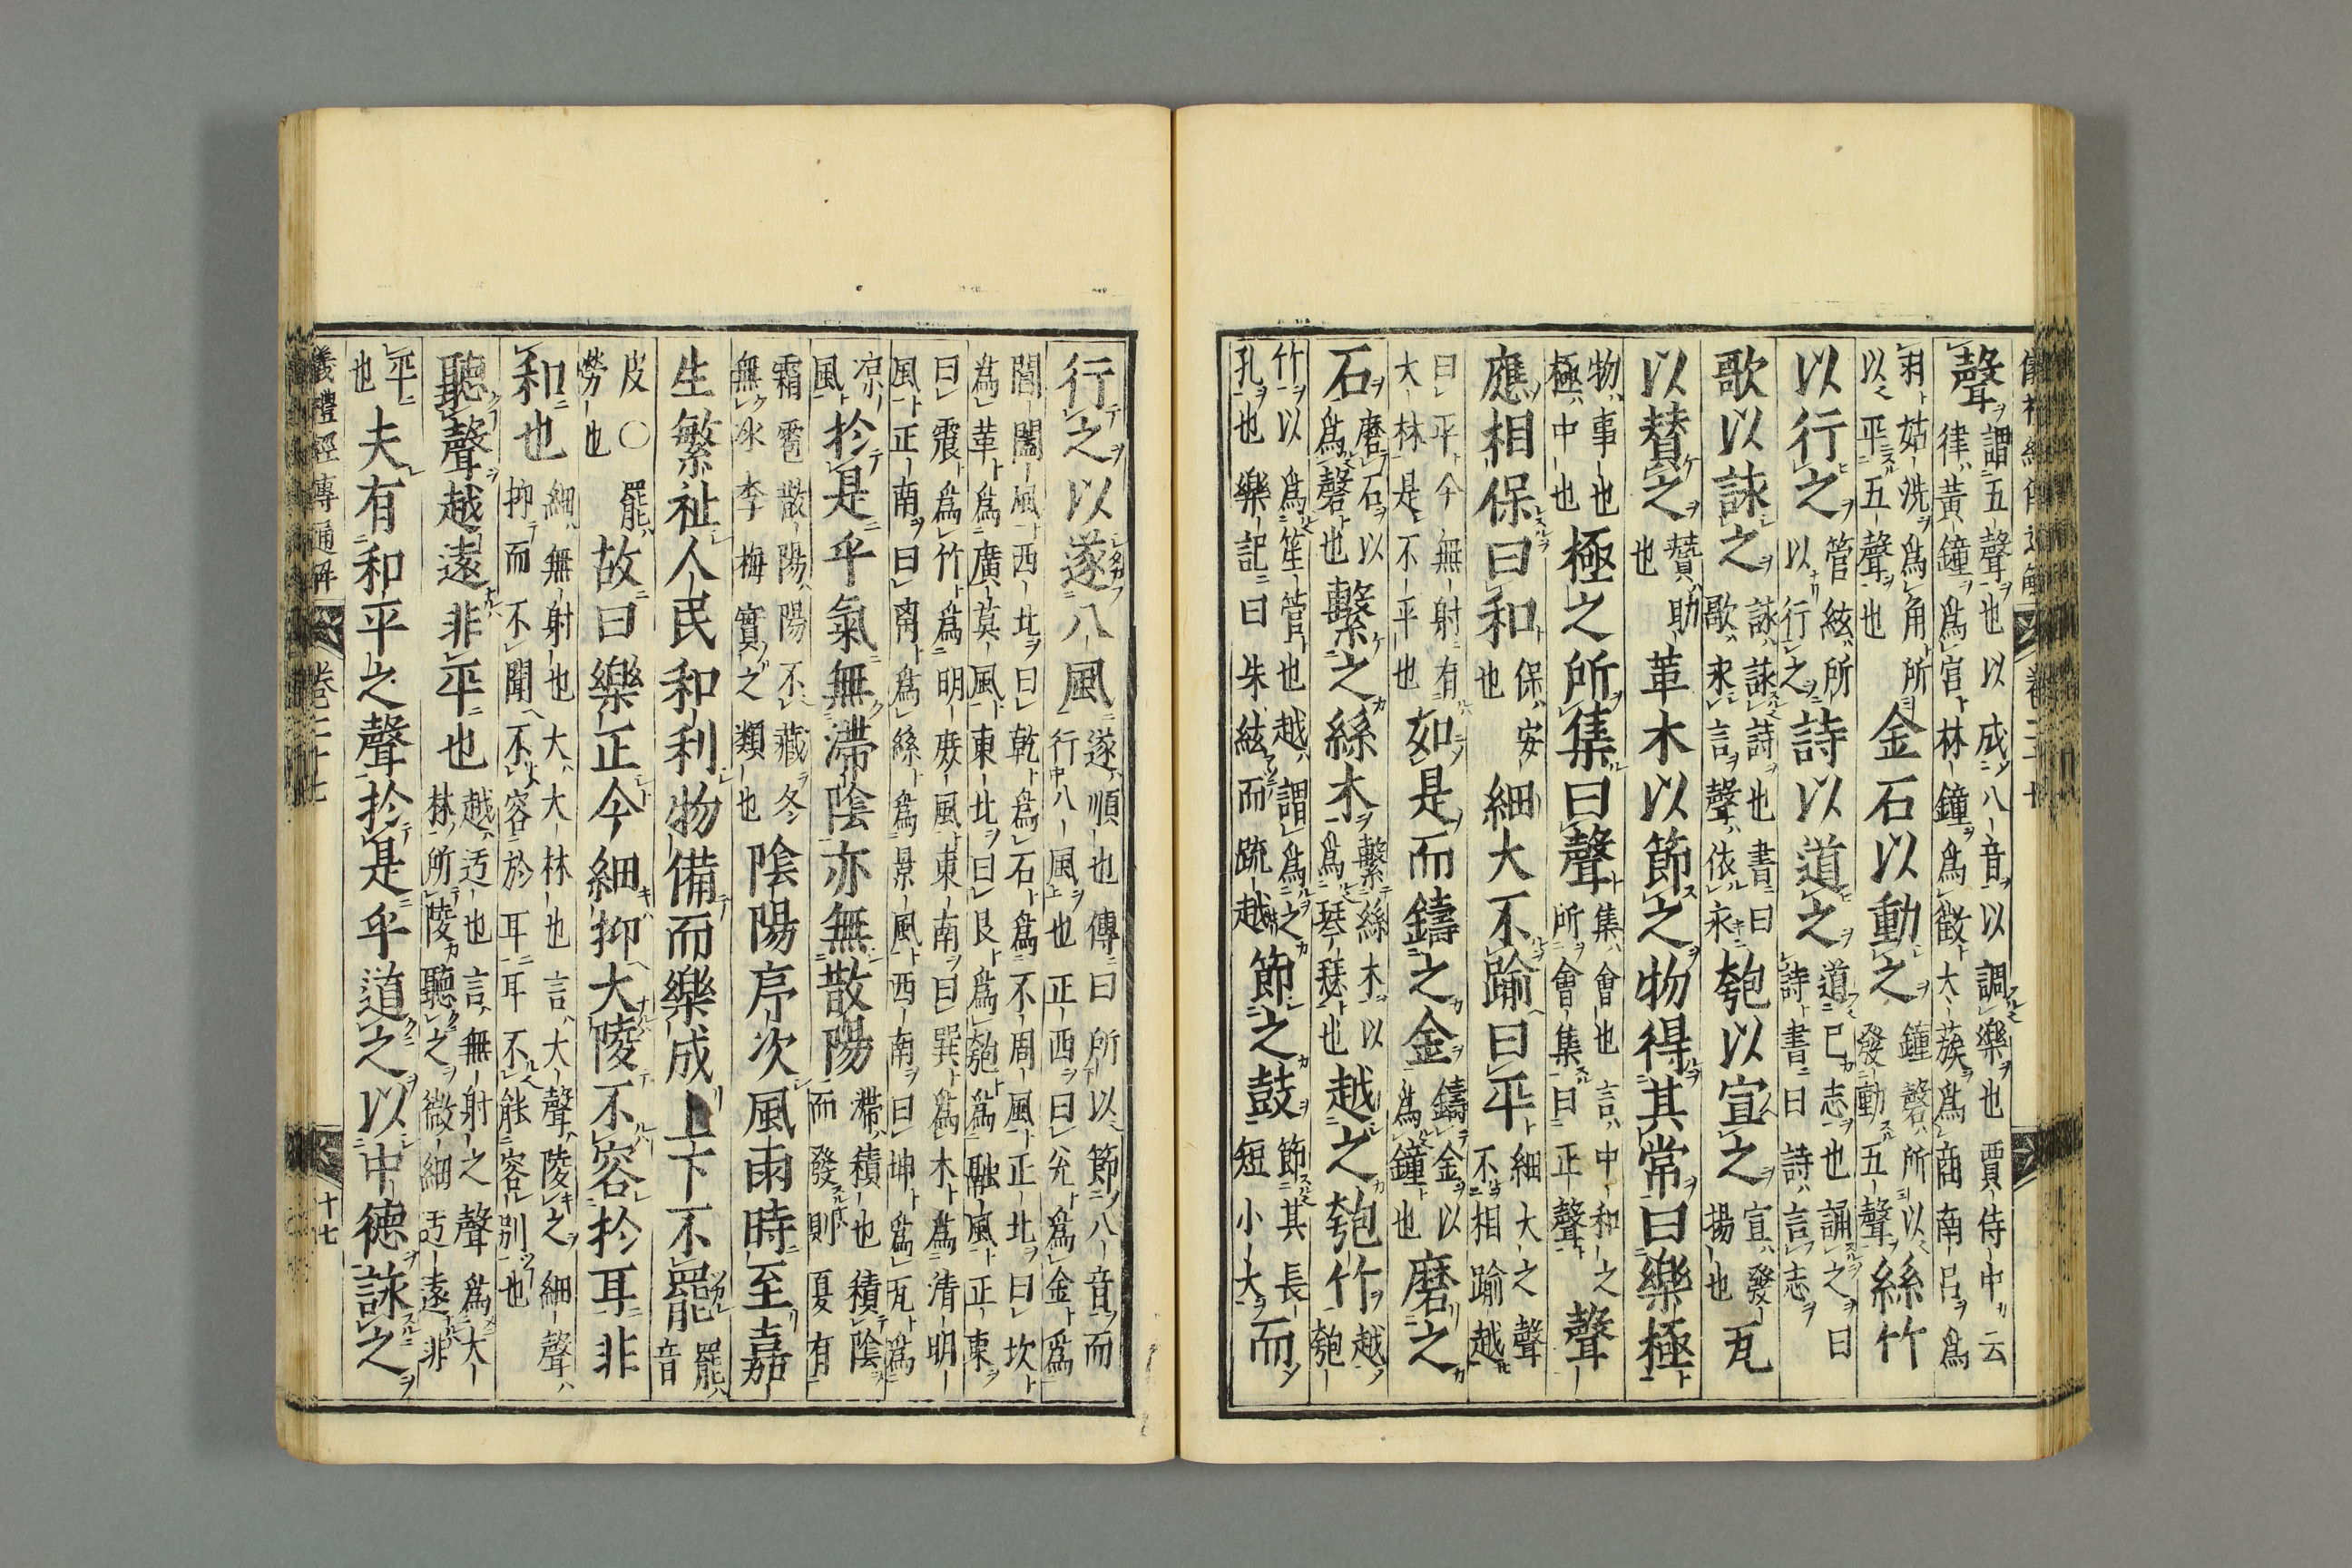 聲謂五聲也以成八音以調樂也賈侍中云
律黃鐘爲宫林鐘爲徵大蔟爲商南吕爲
羽姑洗爲角所以平五聲也金石以動之鐘磬所以發動五聲絲竹
以行之管絃所以行之詩以道之道己志也誦之曰詩書曰詩言志
歌以詠之詠詠詩也書曰歌永言聲依永匏以宣之宣發揚也瓦
以賛之賛助也革木以節之物得其常曰樂極
物事也極中也極之所集曰聲集會也言中和之所會集曰正聲聲
應相保曰和保安也細大不踰曰平細大之聲不相踰越
曰平今無射有大林是不平也如是而鑄之金鑄金以爲鐘也磨之
石磨石以爲磬也繫之絲木繫絲木以爲琴瑟也越之匏竹越匏
竹以爲笙管也越謂爲之孔也樂記曰朱絃而疏越節之鼓節其長短小大而
行之以遂八風遂順也傳曰所以節八音而行八風也正西曰兊爲金爲
閶闔風西北曰乾爲石爲不周風正北曰坎
爲革爲廣莫風東北曰艮爲匏爲融風正東
曰震爲竹爲明庶風東南曰巽爲木爲清明
風正南曰離爲絲爲景風西南曰坤爲瓦爲
凉風於是乎氣無滯陰亦無散陽滯積也積陰而發則夏有
霜雹散陽陽不藏冬無氷李梅實之類也陰陽序次風雨時至嘉
生繁祉人民和利物備而樂成上下不罷罷音
皮○罷勞也故曰樂正今細抑大陵不容於耳非
和也細無射也大大林也言大聲陵之細聲抑而不聞不容於耳耳不能容别也
聽聲越遠非平也越迃也言無射之聲爲大林所陵聽之微細迃遠非
平也夫有和平之聲於是乎道之以中德詠之
儀禮經傳通解 卷二十七 十七